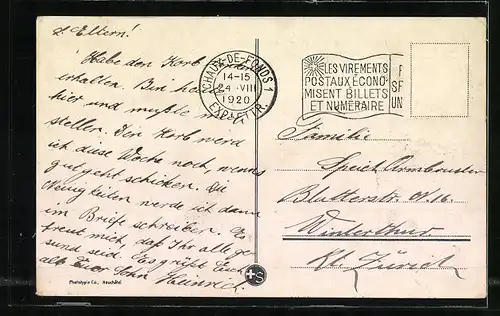 L. Eltern!
Habe den Korb
erhalten. Bin
hier und mußte
stellen. Den Korb werd
ich diese Woche noch, wenns
gut geht schicken. Die
Neuigkeiten werde ich dann
im Briefe schreiben. Es
freut mich, daß Ihr alle ge-
sund seid. Es grüßt Euch
all Euer Sohn Heinrich.
Phototypie Co., Neuchâtel
CHAUX-DE-FONDS 1
14-15
24 VIII
1920
EXP. LETTR.
LES VIREMENTS
POSTAUX ÉCONO-
MISENT BILLETS
ET NUMÉRAIRE
F
SF
UN
Familie
Armbruster
N. 16.
Winterthur
Kt. Zürich
+S